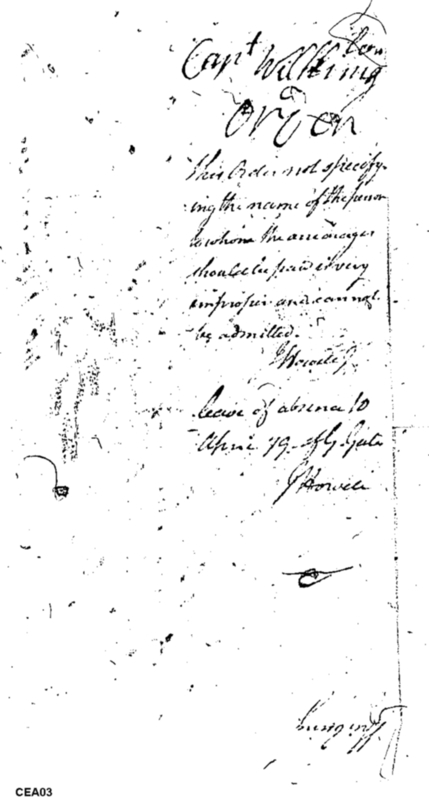 Capt Wilkins
Order
this Order not specify-
ing the name of the person
to whom the arrearages
should be paid is very
improper and cannot
be admitted.
J Howell
leave of absence 10
April 79 - of G. Gates
J Howell
CEA03